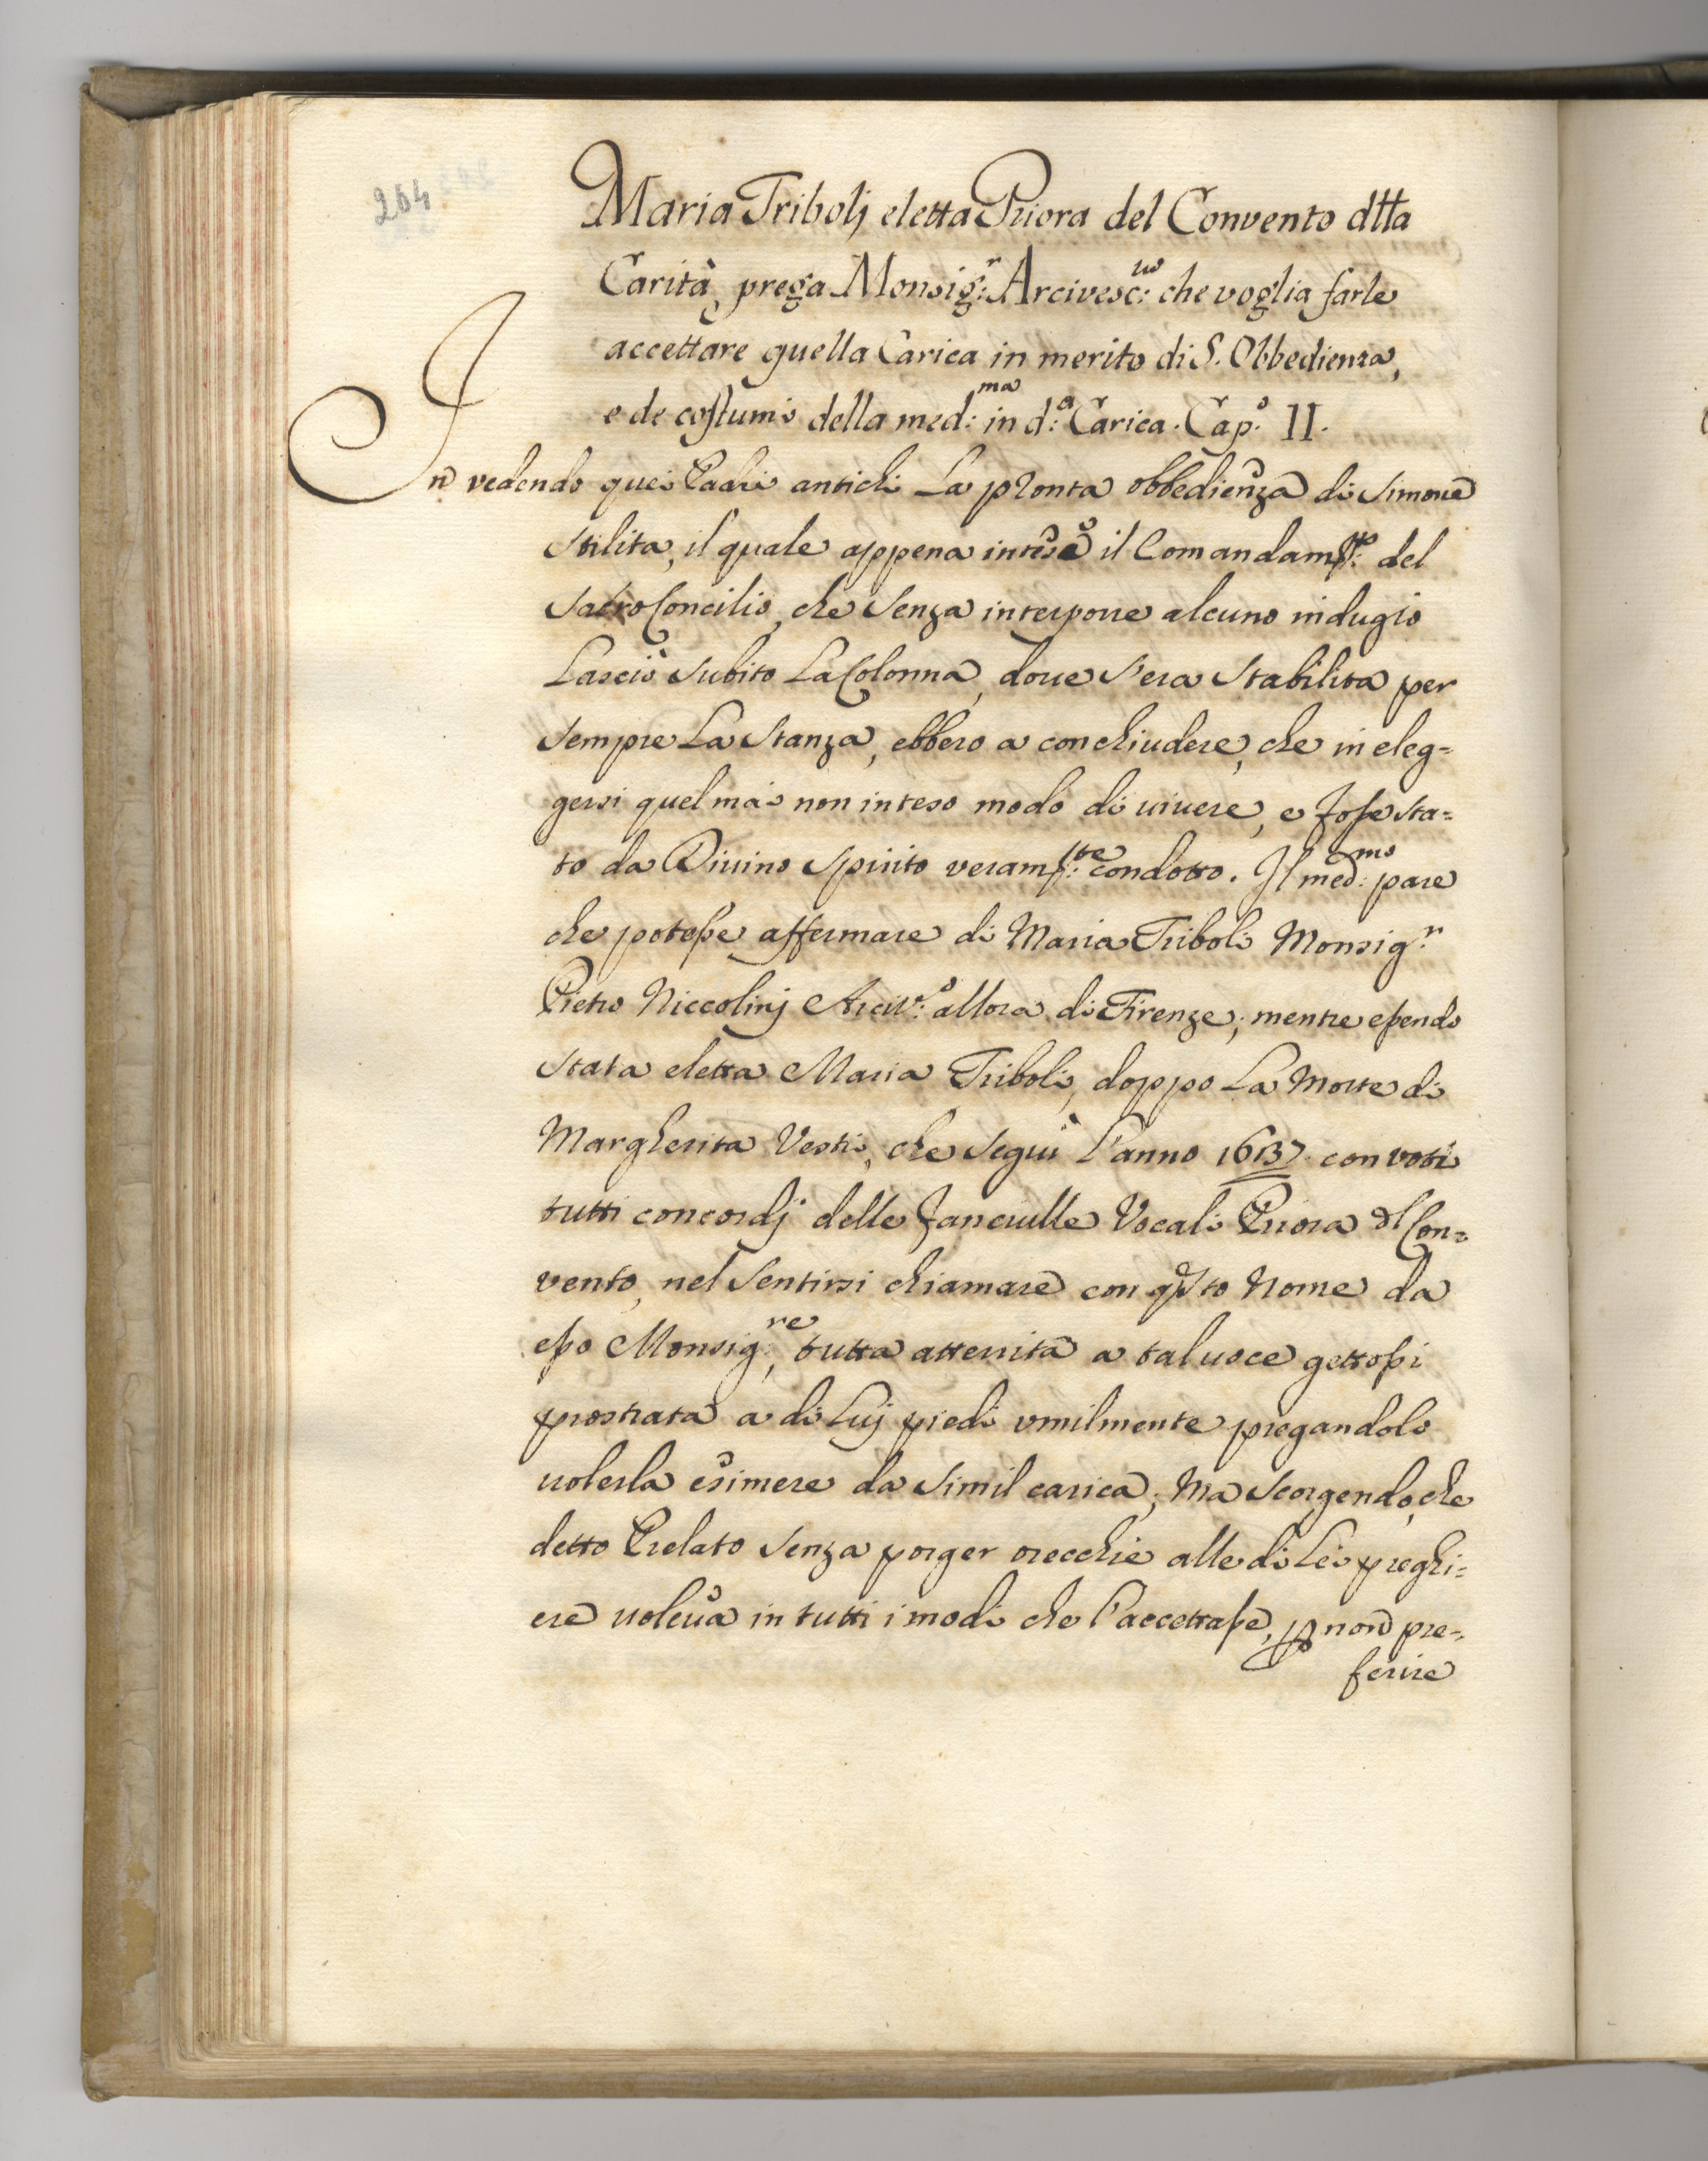 264
Maria Tribolj eletta Priora del Convento dtta
Carità, prega Monsig:r Arcivesc:uo che voglia farle
accettare quella Carica in merito di S. Obbedienza,
e de costumi della med:ma in d:a Carica. Cap:o II.
In vedendo quei Padri antichi La pronta obbedienza di Simone
Stilita, il quale appena intese il Comandam:to del
Sacro Concilio, che Senza interporre alcuno indugio
Lasciò Subito La Colonna, doue S'era Stabilita per
Sempre La Stanza, ebbero a conchiudere, che in eleg=
gersi quel mai non inteso modo di uiuere, e fosse sta=
to da Diuino Spirito veram:te condotto. Il med:mo pare
che potesse affermare di Maria Triboli Monsig:r
Pietro Niccolinj Arciv:o allora di Firenze; mentre essendo
Stata eletta Maria Triboli, doppo La Morte di
Margherita Vesti, che Seguì l'anno 1637. con voti
tutti concordj delle fanciulle Vocali Priora dl Con=
vento, nel Sentirsi chiamare con qsto Nome da
esso Monsig:re, tutta atterrita a tal uoce gettossi
prostrata a di Luj piedi vmilmente pregandolo
uolerla esimere da Simil carica; Ma Scorgendo, che
detto Prelato Senza porger orecchie alle di Lei preghi=
ere uoleua in tutti i modi che l'accettasse, p non pre=
ferire